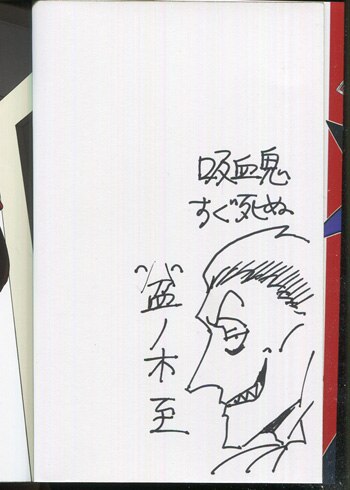 吸血鬼
すぐ死ぬ
盆ノ木至